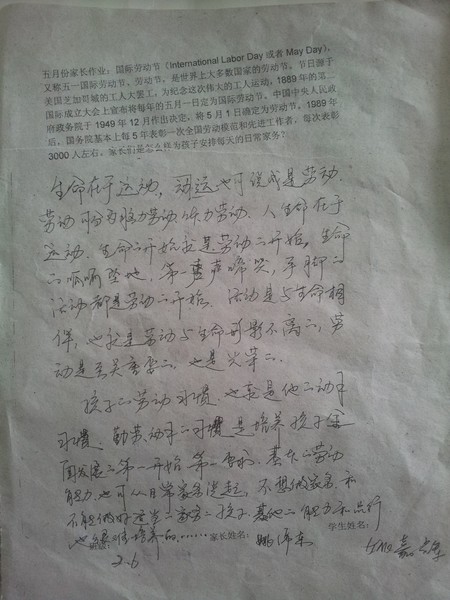 五月份家长作业：国际劳动节（International Labor Day 或者 May Day），
又称五一国际劳动节、劳动节，是世界上大多数国家的劳动节。节日源于
美国芝加哥城的工人大罢工，为纪念这次伟大的工人运动，1889年的第二
国际成立大会上宣布将每年的五月一日定为国际劳动节。中国中央人民政
府政务院于 1949 年 12 月作出决定，将 5 月 1 日确定为劳动节。1989年
后，国务院基本上每 5 年表彰一次全国劳动模范和先进工作者，每次表彰
3000 人左右。家长们是怎么样为孩子安排每天的日常家务？
生命在于运动，动运也可说成是劳动。
劳动可分为脑力劳动体力劳动。人生命在于
运动，生命二开始就是劳动二开始，生命
二呱呱坠地，第一声啼哭，手脚二
活动都是劳动二开始。活动是与生命相
伴，也就是劳动与生命形影不离二，劳
动是至关重要二，也是光荣二。
孩子二劳动习惯，也就是他二动手
习惯，勤劳动手二习惯是培养孩子全
面发展二第一开始第一要求，基本二劳动
能力也可从日常家务说起，不想做家务和
不能做好 家务二孩子其他二能力和品行
也 培养的……
家长姓名：
学生姓名：
班级：
2.6